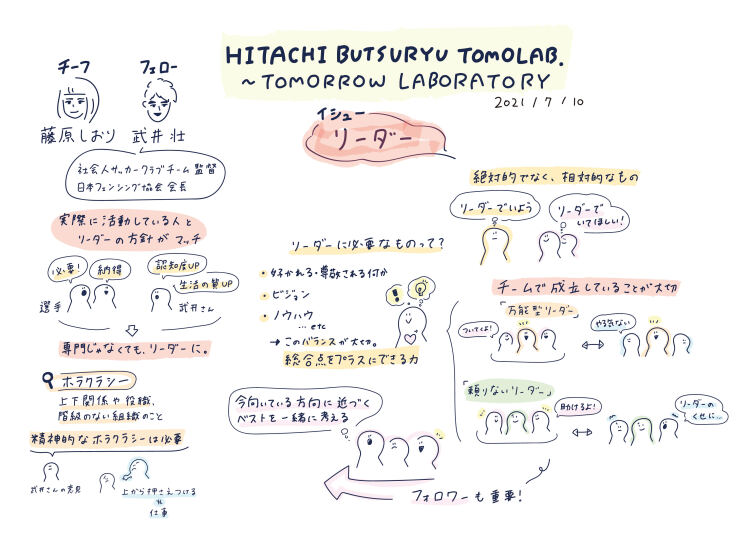 HITACHI BUTSURYU TOMOLAB.
~TOMORROW LABORATORY
2021/7/10
チーフ
フェロー
藤原しおり
武井 壮
社会人サッカークラブチーム 監督
日本フェンシング協会 会長
実際に活動している人と
リーダーの方針がマッチ
必要!
納得
認知度UP
生活の質UP
選手
武井さん
専門じゃなくても、リーダーに。
ホラクラシー
上下関係や役職、
階級のない組織のこと
精神的なホラクラシーは必要
武井さんの意見
上から押さえつける
仕事
イシュー
リーダー
リーダーに必要なものって?
・好かれる・尊敬される何か
・ビジョン
・ノウハウ
…etc
→このバランスが大切。
総合点をプラスにできる力
!
今向いている方向に近づく
ベストを一緒に考える
フォロワーも重要!
絶対的でなく、相対的なもの
リーダーでいよう
リーダーで
いてほしい!
チームで成立していることが大切
「万能型リーダー」
ついてくよ!
やる気ない
「頼りないリーダー」
助けるよ!
リーダーの
くせに…